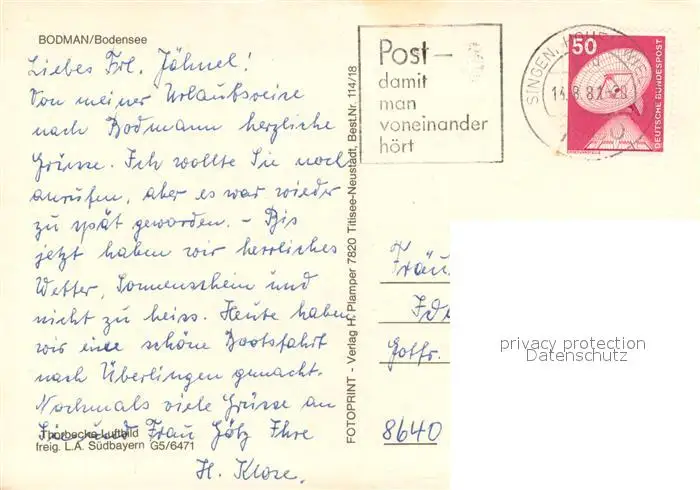 BODMAN/Bodensee
Liebes Frl. Jähnel!
Von meiner Urlaubsreise
nach Bodmann herzliche
Grüsse. Ich wollte Sie noch
anrufen, aber es war wieder
zu spät geworden. – Bis
jetzt haben wir herrliches
Wetter, Sonnenschein und
nicht zu heiss. Heute haben
wir eine schöne Bootsfahrt
nach Überlingen gemacht.
Nochmals viele Grüsse an
Sie und Frau Götz Ihre
H. Klose.
Thorbecke-Luftbild
freig. L.A. Südbayern G5/6471
FOTOPRINT - Verlag H. Plamper 7820 Titisee-Neustadt, Best.Nr. 114/18
Post –
damit
man
voneinander
hört
SINGEN, HOHENTWIEL
50
DEUTSCHE BUNDESPOST
Fräu
Ide
Gottfr.
8640
privacy protection
Datenschutz